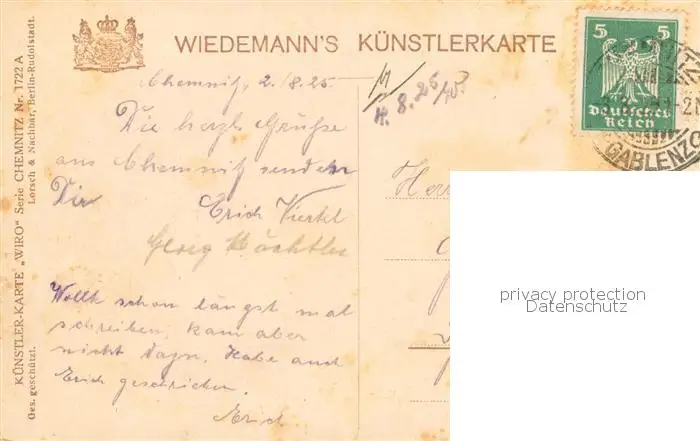 WIEDEMANN'S KÜNSTLERKARTE
Chemnitz 2./8.25.
4. 8. 25
Die herzl. Grüße
aus Chemnitz senden
Dir Erich Viertel
Georg Wächtler
Wollte schon längst mal
schreiben, kam aber
nicht dazu. Habe auch
Erich geschrieben.
Erich
Herrn
5 5
Deutsches
Reich
GABLENZ
privacy protection
Datenschutz
KÜNSTLER-KARTE „WIRO" Serie CHEMNITZ Nr. 1722 A
Ges. geschützt. Lorsch & Nachbar, Berlin-Rudolstadt.